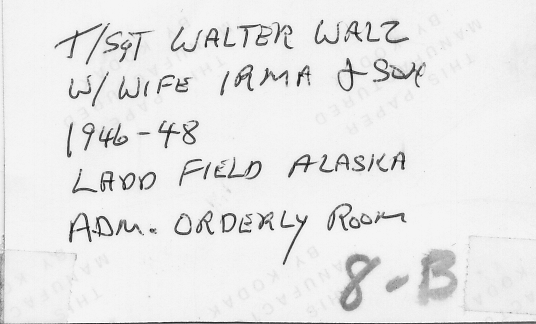 T/SGT WALTER WALZ
W/ WIFE IRMA & SON
1946-48
LADD FIELD ALASKA
ADM. ORDERLY ROOM
8-B
THIS PAPER
MANUFACTURED
BY KODAK